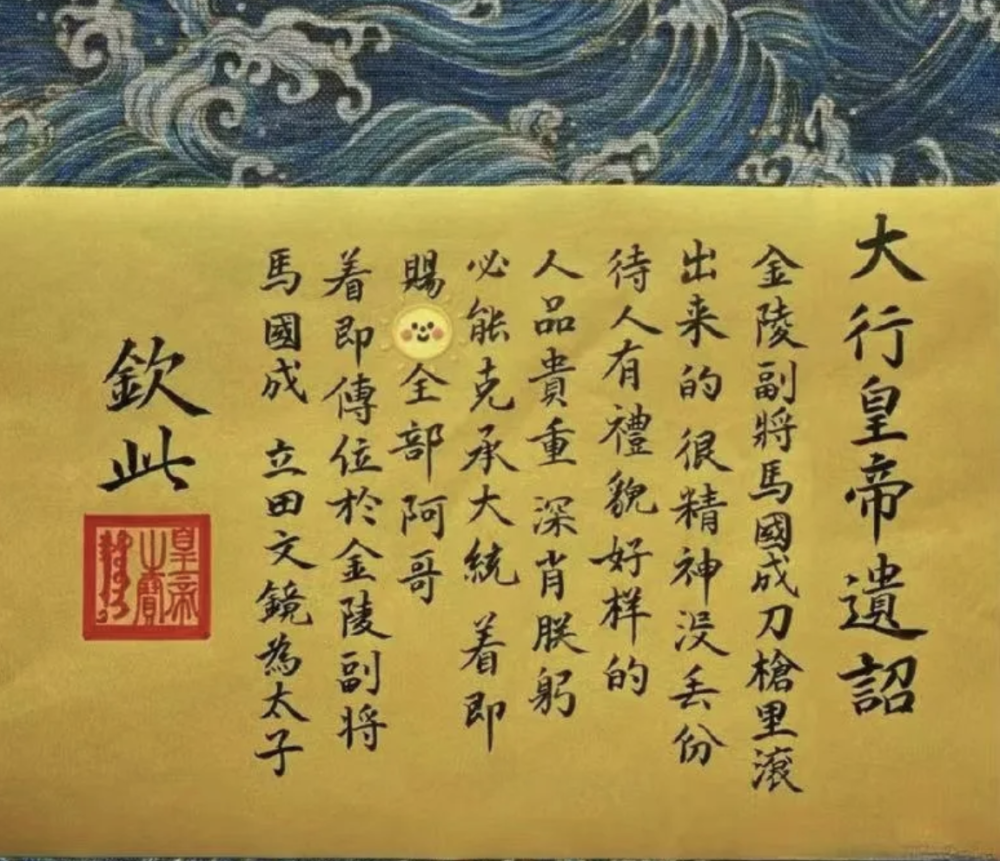 大行皇帝遺詔
金陵副將馬國成刀槍里滾
出来的 很精神没丢份
待人有禮貌好样的
人品貴重 深肖朕躬
必能克承大統 着即
賜全部阿哥
着即傳位於金陵副将
馬國成 立田文鏡為太子
欽此
皇帝之寶